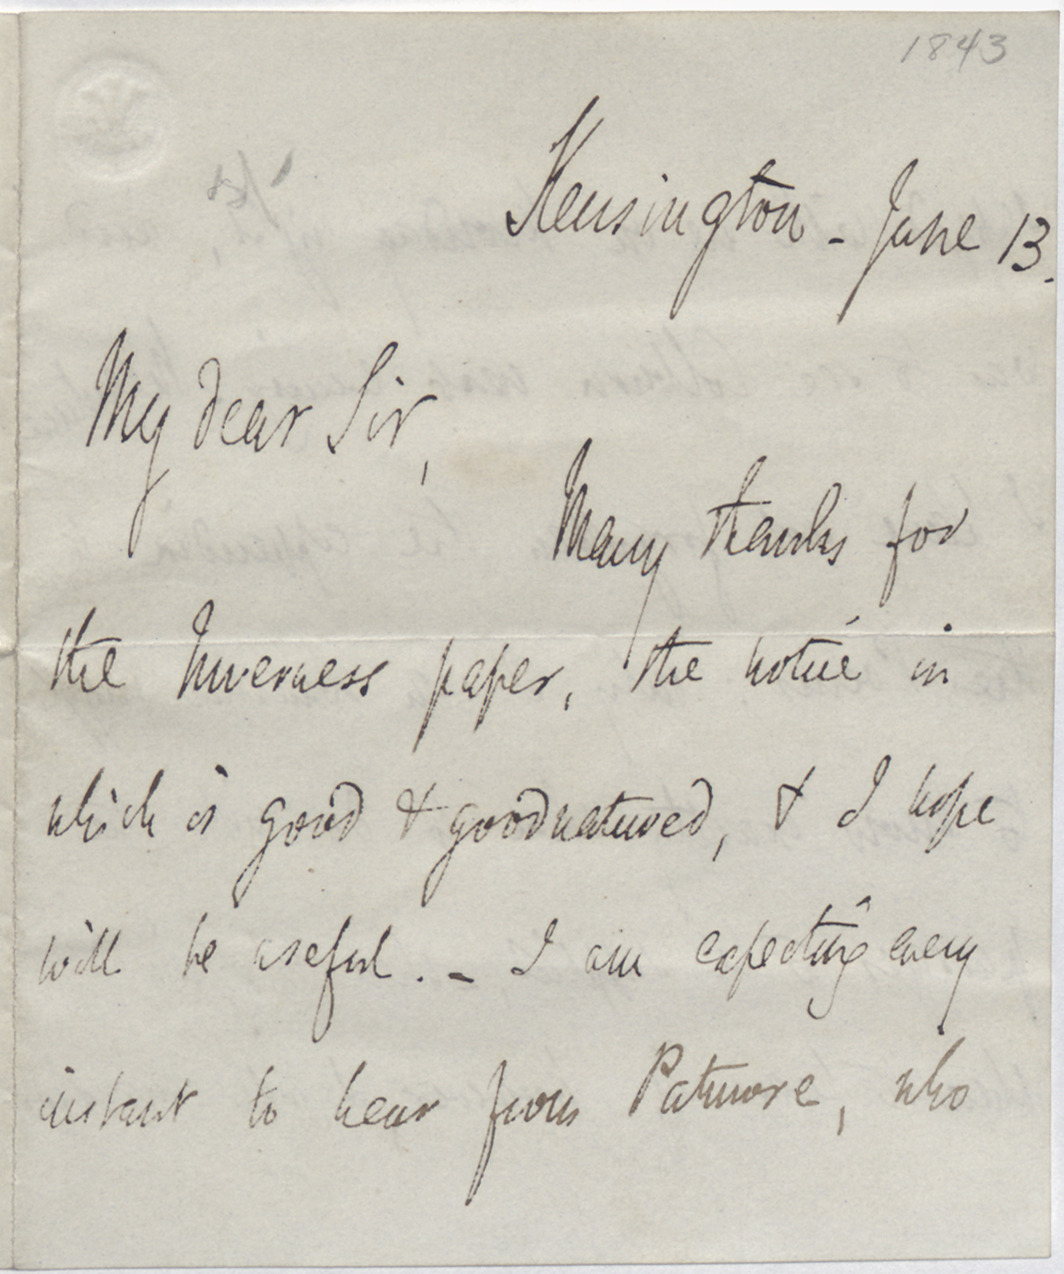 1843
Kensington - June 13.
My dear Sir,
Many thanks for
the Inverness paper, the notice in
which is good & goodnatured, & I hope
will be useful. - I am expecting every
instant to hear from Patmore, who